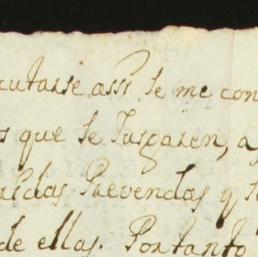 cutarse assi se me con
s que se Jusgaren, a
ridas Prevendas y s
de ellas. Portanto